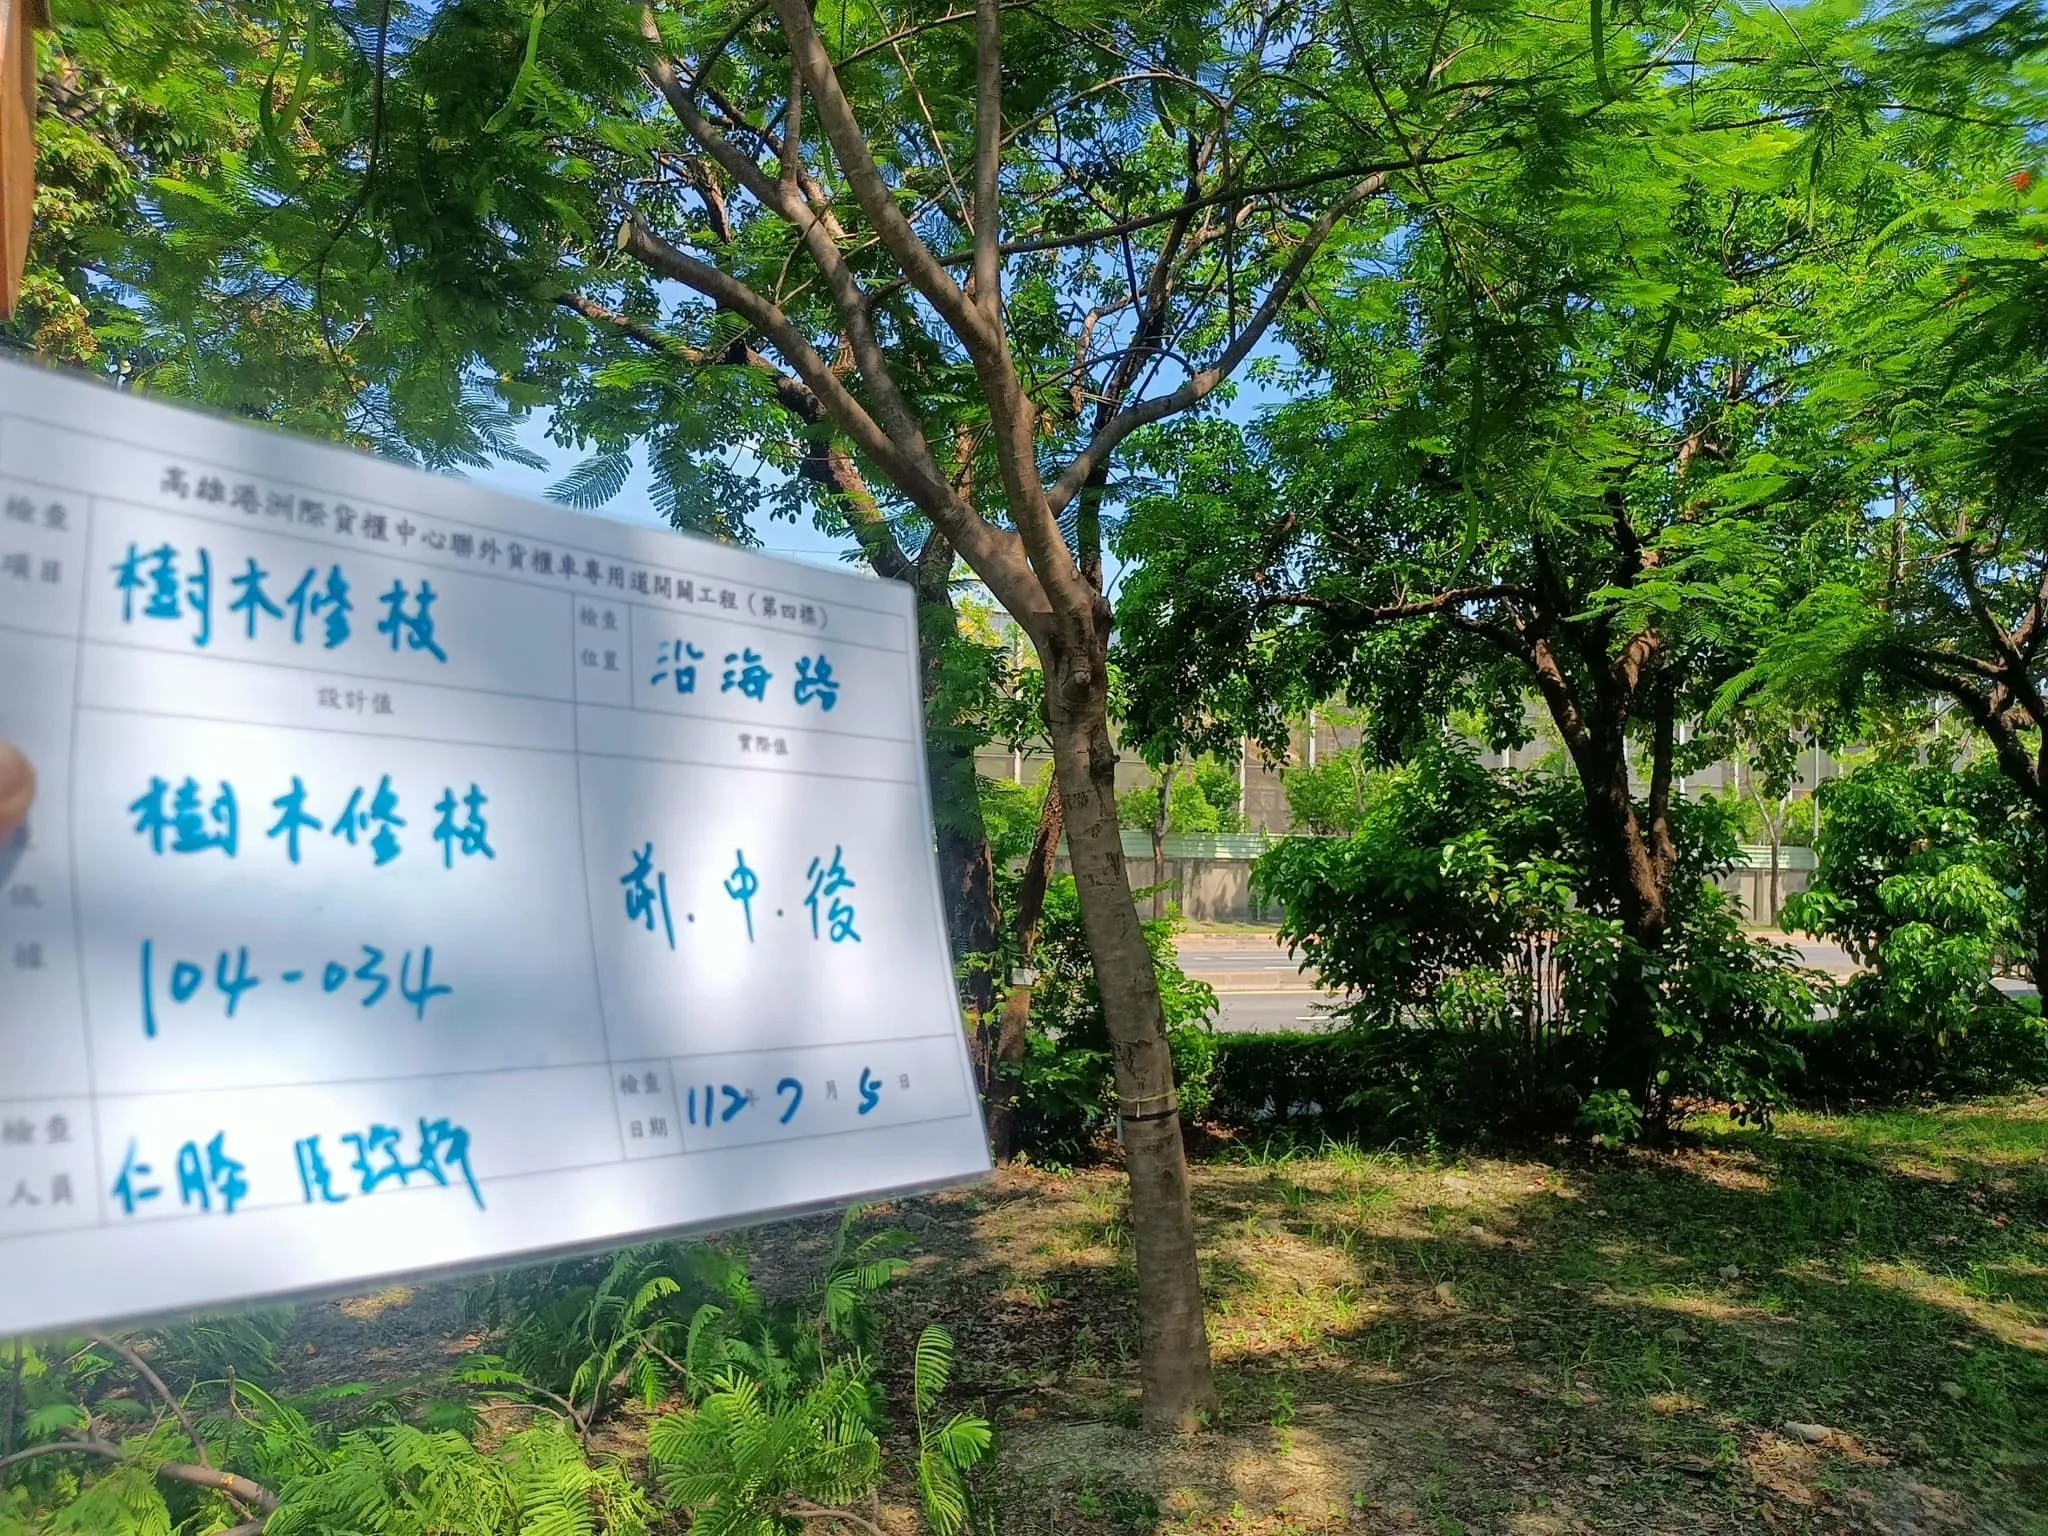 高雄港洲際貨櫃中心聯外貨櫃車專用道開闢工程（第四標）
檢查項目
樹木修枝
檢查位置
沿海路
設計值
實際值
樹木修枝
104-034
前.中.後
依據
檢查人員
仁勝
檢查日期
112年7月5日